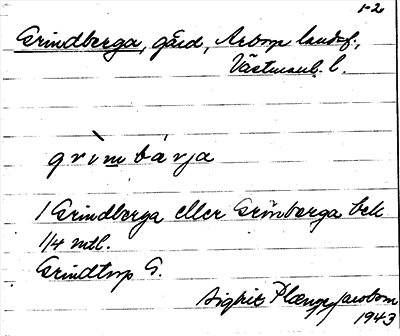 1-2
Grindberga, gård, Arboga landsf.,
Västmanl. l.
grìmbárja
1 Grindberga eller Grönberga bek
1/4 mtl.
Grindtorp S.
Sigrit Plænge Jacobson
1943